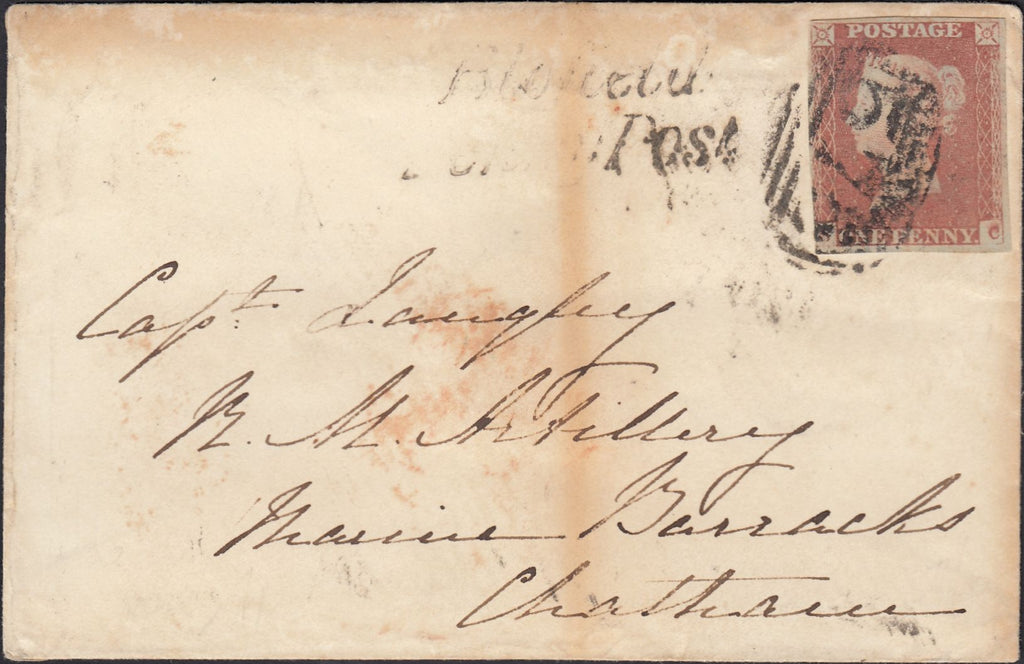 POSTAGE
Post
ONE PENNY C
Capt. Langley
R. M. Artillery
Marine Barracks
Chatham